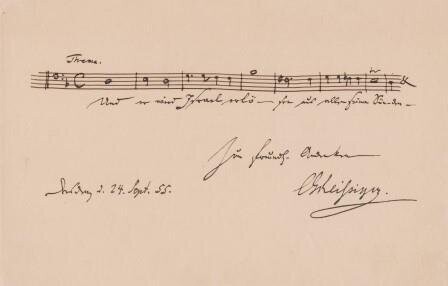 Thema.
Und er wird Israel erlö – sen aus allen seinen Sünden –
Zu freundl. Andenken
Dresden d. 24. Sept. 55.
CGReissiger.